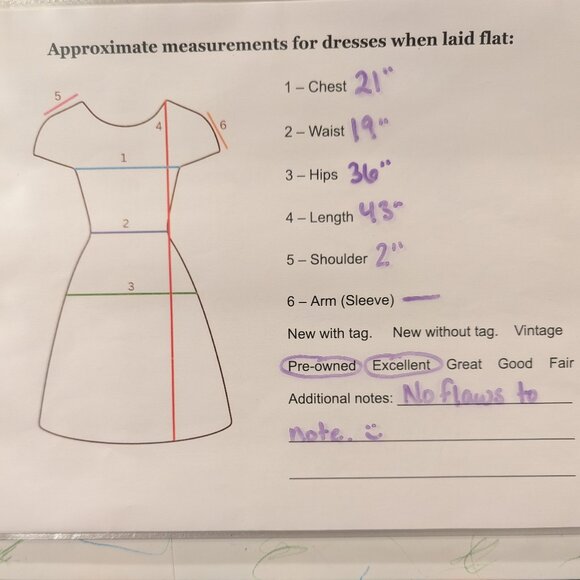 Approximate measurements for dresses when laid flat:
5
4
6
1
2
3
1 – Chest 21"
2 – Waist 19"
3 – Hips 36"
4 – Length 43"
5 – Shoulder 2"
6 – Arm (Sleeve) —
New with tag. New without tag. Vintage
Pre-owned Excellent Great Good Fair
Additional notes: No flaws to
note. :)